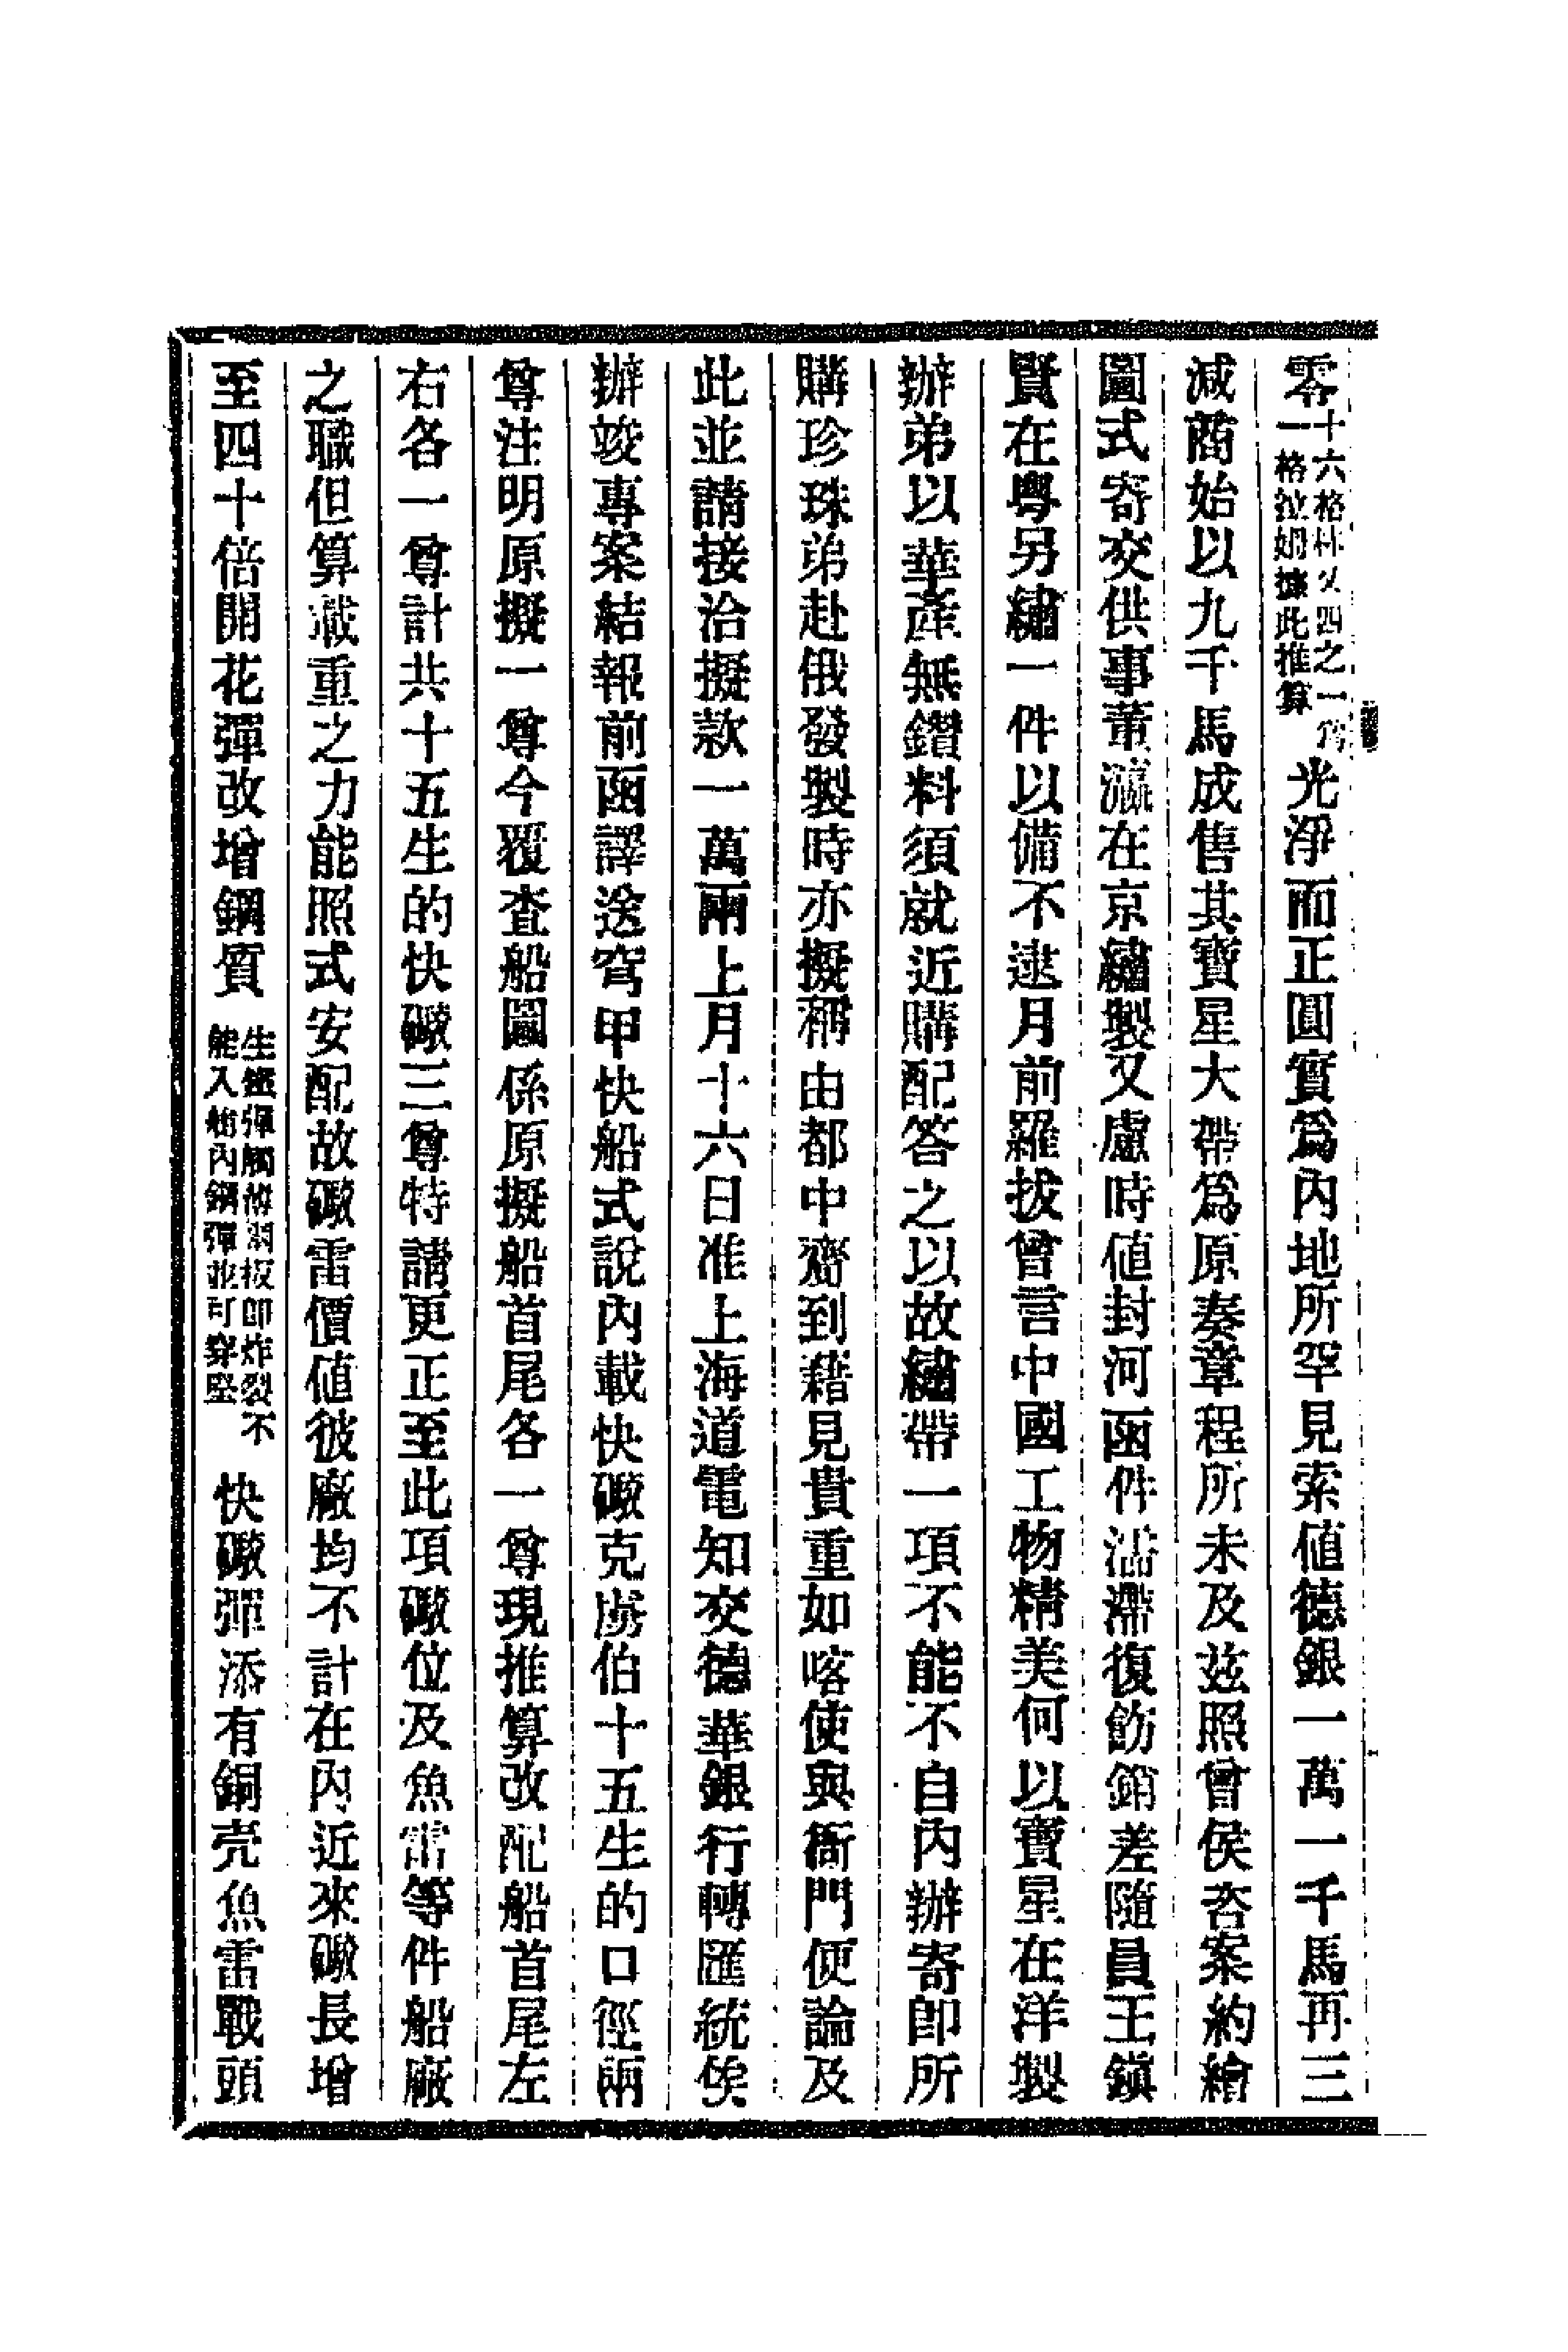 零十六格林又四之一爲一格泣姆據此推算光淨而正圓實爲內地所罕見索値德銀一萬一千馬再三
減商始以九千馬成售其寶星大帶爲原奏章程所未及玆照曾侯咨案約繪
圖式寄交供事董瀛在京繡製又慮時値封河函件濡滯復飭銷差隨員王鎭
賢在粤另繡一件以備不逮月前羅拔曾言中國工物精美何以寶星在洋製
辦弟以華產無鑽料須就近購配答之以故繡帶一項不能不自內辦寄卽所
購珍珠弟赴俄發製時亦擬稱由都中齎到藉見貴重如喀使與衙門便論及
此並請接洽擬款一萬兩上月十六日准上海道電知交德華銀行轉匯統俟
辦竣專案結報前函譯送穹甲快船式說內載快礮克虏伯十五生的口徑兩
尊注明原擬一尊今覆查船圖係原擬船首尾各一尊現推算改配船首尾左
右各一尊計共十五生的快礮三尊特請更正至此項礮位及魚雷等件船廠
之職但算載重之力能照式安配故礮雷價値彼廠均不計在內近來礮長增
至四十倍開花彈改增鋼質生鐵彈觸板卽炸裂不能入船內鋼彈並可穿堅快礮彈添有銅壳魚雷戰頭